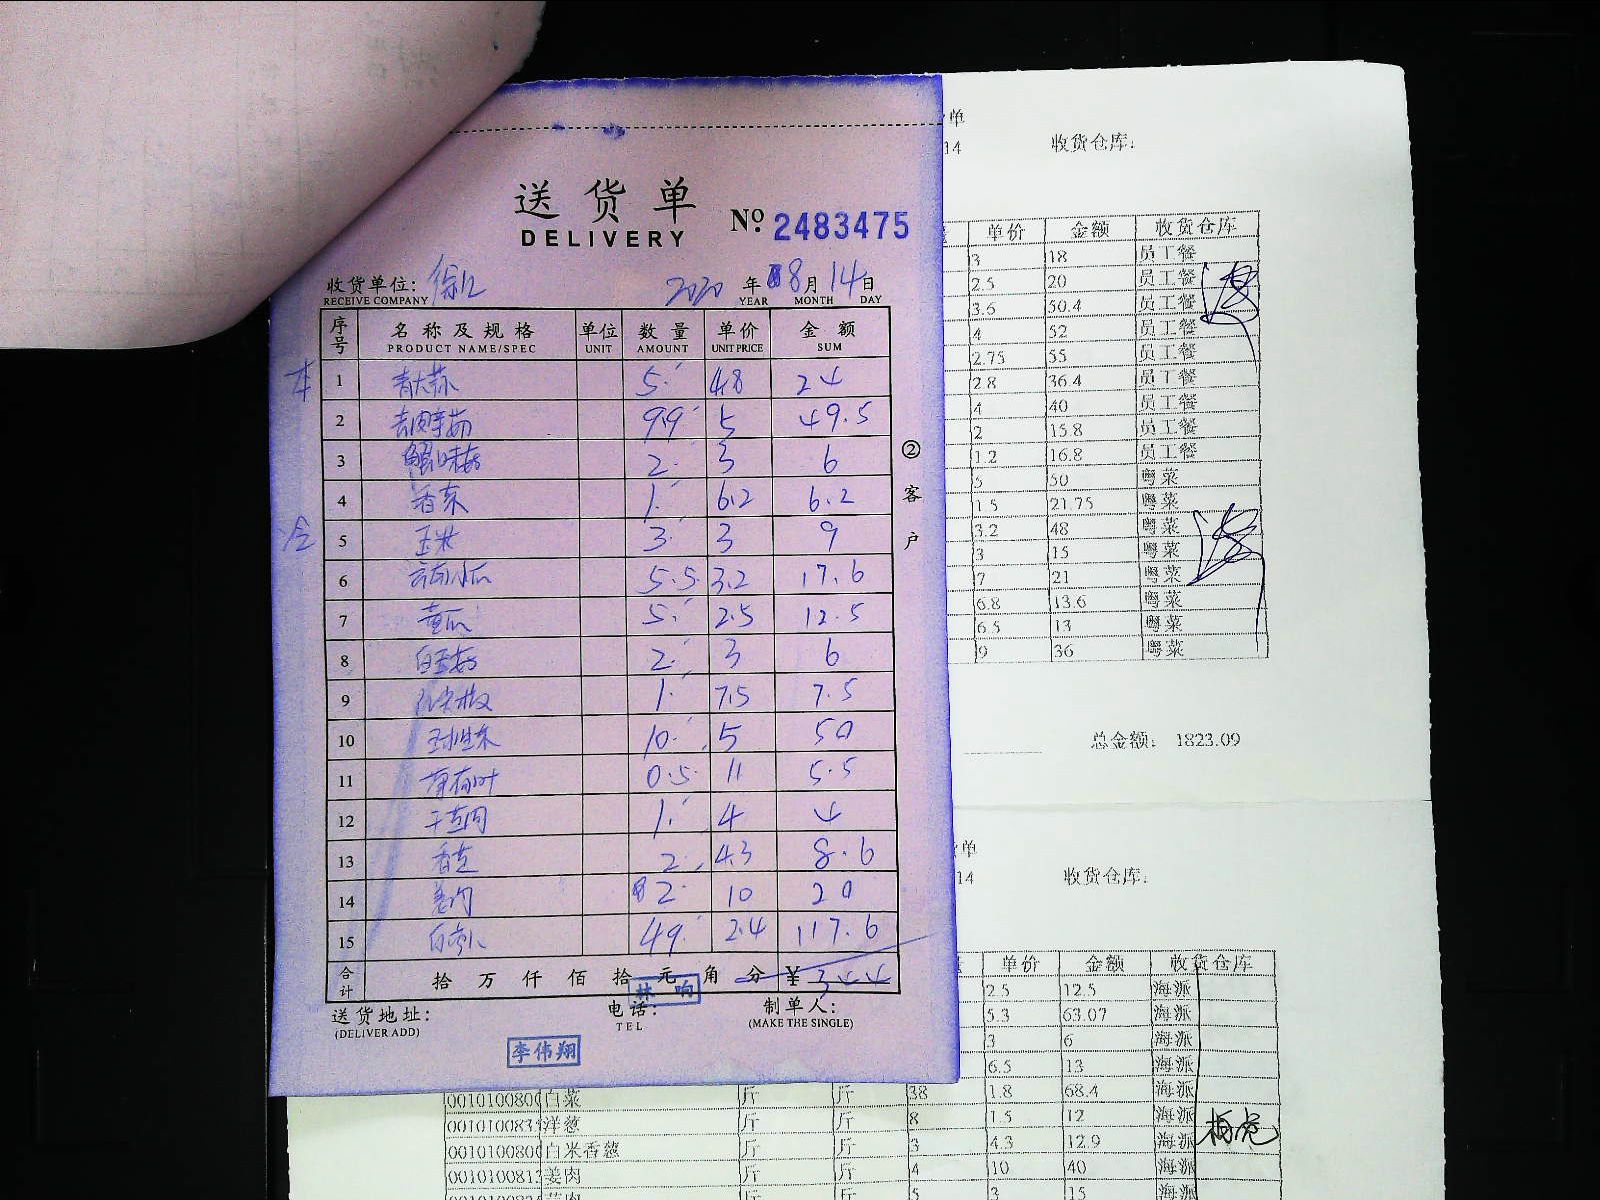 送货单
DELIVERY
№ 2483475
收货单位: 徐汇 2020 年 8 月 14 日
RECEIVE COMPANY YEAR MONTH DAY
序号 名称及规格 单位 数量 单价 金额
PRODUCT NAME/SPEC UNIT AMOUNT UNIT PRICE SUM
本
1 青大蒜 5 4.8 24
2 9.9 5 49.5
3 蟹味菇 2 3 6
4 香菜 1 6.2 6.2
5 玉米 3 3 9
6 云南小瓜 5.5 3.2 17.6
7 黄瓜 5 2.5 12.5
8 白玉菇 2 3 6
9 1 7.5 7.5
10 球生菜 10 5 50
11 薄荷叶 0.5 11 5.5
12 1 4 4
13 香葱 2 4.3 8.6
14 姜肉 2 10 20
15 白萝卜 49 2.4 117.6
合计 拾 万 仟 佰 拾 元 角 分 ¥ 344
林 响
送货地址: 电话: 制单人:
(DELIVER ADD) TEL (MAKE THE SINGLE)
李伟翔
②客户
单
14 收货仓库:
单价 金额 收货仓库
3 18 员工餐
2.5 20 员工餐
3.6 50.4 员工餐
4 52 员工餐
2.75 55 员工餐
2.8 36.4 员工餐
4 40 员工餐
2 15.8 员工餐
1.2 16.8 员工餐
5 50 粤菜
1.5 21.75 粤菜
3.2 48 粤菜
3 15 粤菜
7 21 粤菜
6.8 13.6 粤菜
6.5 13 粤菜
9 36 粤菜
总金额: 1823.09
单
14 收货仓库:
单价 金额 收货仓库
2.5 12.5 海派
5.3 63.07 海派
3 6 海派
6.5 13 海派
0010100800 白菜 斤 斤 38 1.8 68.4 海派
001010083 洋葱 斤 斤 8 1.5 12 海派
0010100800 白米香葱 斤 斤 3 4.3 12.9 海派
0010100813 姜肉 斤 斤 4 10 40 海派
斤 斤 5 3 15 海派